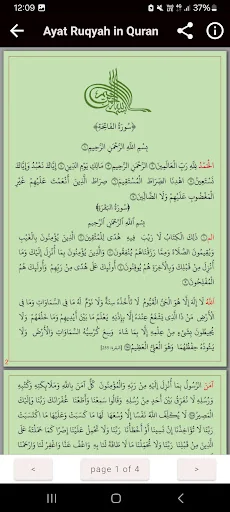 12:09
4G 37%
Ayat Ruqyah in Quran
﴿سُورَةُ الفَاتِحَةِ﴾
بِسْمِ اللَّهِ الرَّحْمَنِ الرَّحِيمِ
الْحَمْدُ لِلَّهِ رَبِّ الْعَالَمِينَ الرَّحْمَنِ الرَّحِيمِ مَالِكِ يَوْمِ الدِّينِ إِيَّاكَ نَعْبُدُ وَإِيَّاكَ
نَسْتَعِينُ اهْدِنَا الصِّرَاطَ الْمُسْتَقِيمَ صِرَاطَ الَّذِينَ أَنْعَمْتَ عَلَيْهِمْ غَيْرِ
الْمَغْضُوبِ عَلَيْهِمْ وَلَا الضَّالِّينَ
﴿سُورَةُ البَقَرَةِ﴾
بِسْمِ اللَّهِ الرَّحْمَنِ الرَّحِيمِ
الم ذَلِكَ الْكِتَابُ لَا رَيْبَ فِيهِ هُدًى لِلْمُتَّقِينَ الَّذِينَ يُؤْمِنُونَ بِالْغَيْبِ
وَيُقِيمُونَ الصَّلَاةَ وَمِمَّا رَزَقْنَاهُمْ يُنْفِقُونَ وَالَّذِينَ يُؤْمِنُونَ بِمَا أُنْزِلَ إِلَيْكَ وَمَا
أُنْزِلَ مِنْ قَبْلِكَ وَبِالْآخِرَةِ هُمْ يُوقِنُونَ أُولَئِكَ عَلَى هُدًى مِنْ رَبِّهِمْ وَأُولَئِكَ هُمُ
الْمُفْلِحُونَ
اللَّهُ لَا إِلَهَ إِلَّا هُوَ الْحَيُّ الْقَيُّومُ لَا تَأْخُذُهُ سِنَةٌ وَلَا نَوْمٌ لَهُ مَا فِي السَّمَاوَاتِ وَمَا فِي
الْأَرْضِ مَنْ ذَا الَّذِي يَشْفَعُ عِنْدَهُ إِلَّا بِإِذْنِهِ يَعْلَمُ مَا بَيْنَ أَيْدِيهِمْ وَمَا خَلْفَهُمْ وَلَا
يُحِيطُونَ بِشَيْءٍ مِنْ عِلْمِهِ إِلَّا بِمَا شَاءَ وَسِعَ كُرْسِيُّهُ السَّمَاوَاتِ وَالْأَرْضَ وَلَا
يَئُودُهُ حِفْظُهُمَا وَهُوَ الْعَلِيُّ الْعَظِيمُ
2
آمَنَ الرَّسُولُ بِمَا أُنْزِلَ إِلَيْهِ مِنْ رَبِّهِ وَالْمُؤْمِنُونَ كُلٌّ آمَنَ بِاللَّهِ وَمَلَائِكَتِهِ وَكُتُبِهِ
وَرُسُلِهِ لَا نُفَرِّقُ بَيْنَ أَحَدٍ مِنْ رُسُلِهِ وَقَالُوا سَمِعْنَا وَأَطَعْنَا غُفْرَانَكَ رَبَّنَا وَإِلَيْكَ
الْمَصِيرُ لَا يُكَلِّفُ اللَّهُ نَفْسًا إِلَّا وُسْعَهَا لَهَا مَا كَسَبَتْ وَعَلَيْهَا مَا اكْتَسَبَتْ
رَبَّنَا لَا تُؤَاخِذْنَا إِنْ نَسِينَا أَوْ أَخْطَأْنَا رَبَّنَا وَلَا تَحْمِلْ عَلَيْنَا إِصْرًا كَمَا حَمَلْتَهُ عَلَى
الَّذِينَ مِنْ قَبْلِنَا رَبَّنَا وَلَا تُحَمِّلْنَا مَا لَا طَاقَةَ لَنَا بِهِ وَاعْفُ عَنَّا وَاغْفِرْ لَنَا وَارْحَمْنَا
<
page 1 of 4
>